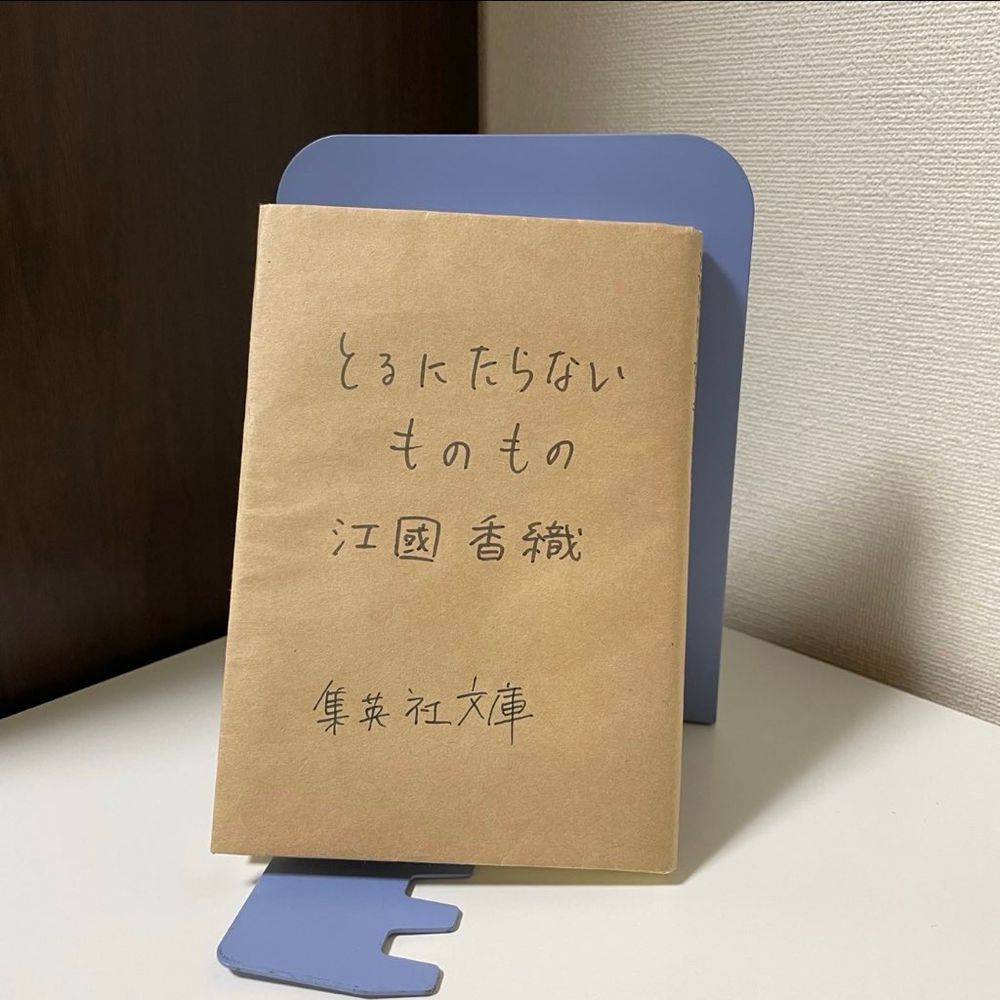 とるにたらない
ものもの
江國香織
集英社文庫